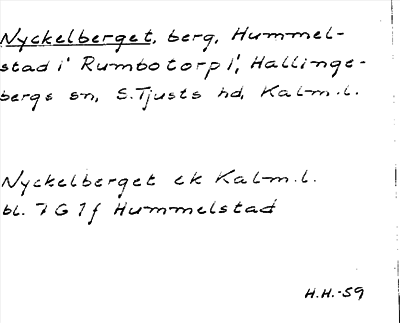 Nyckelberget, berg, Hummel-
stad i Rumbotorp 1:1, Hallinge-
bergs sn, S. Tjusts hd, Kalm. l.
Nyckelberget ek Kalm. l.
bl. 7 G 1 f Hummelstad
H.H.-59